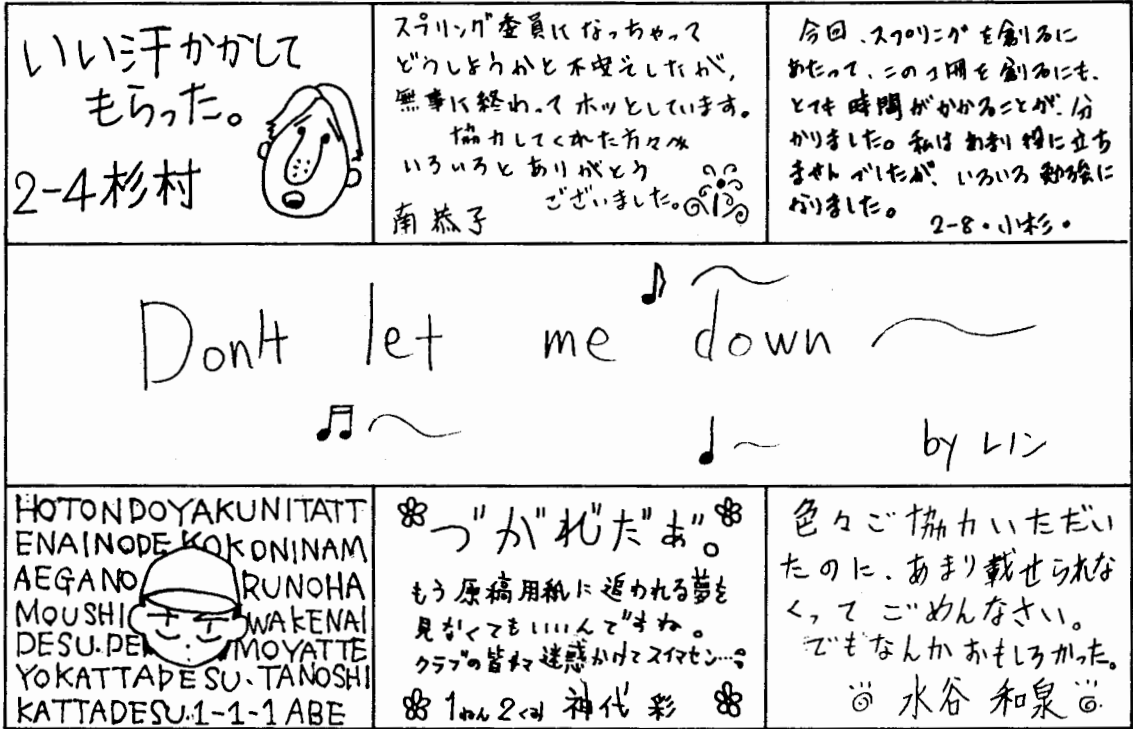 いい汗かかして
もらった。
2-4杉村
スプリング委員になっちゃって
どうしようかと不安でしたが、
無事に終わってホッとしています。
協力してくれた方々
いろいろとありがとう
ございました。
南 恭子
今回、スプリングを創るに
あたって、この1冊を創るにも、
とても時間がかかることが、分
かりました。私はあまり役に立ち
ませんでしたが、いろいろ勉強に
なりました。
2-8・小杉・
Don't let me down 〜
by レノン
HOTONDOYAKUNITATT
ENAINODE KOKONINAM
AEGANO RUNOHA
MOUSHI WAKENAI
DESU.DE MOYATTE
YOKATTADESU.TANOSHI
KATTADESU.1-1-1 ABE
づがれだぁ゛。
もう原稿用紙に追われる夢を
見なくてもいいんですね。
クラブの皆サマ迷惑かけてスイマセン…。
1ねん2くみ 神代 彩
色々ご協力いただい
たのに、あまり載せられな
くって ごめんなさい。
でもなんかおもしろかった。
水谷 和泉